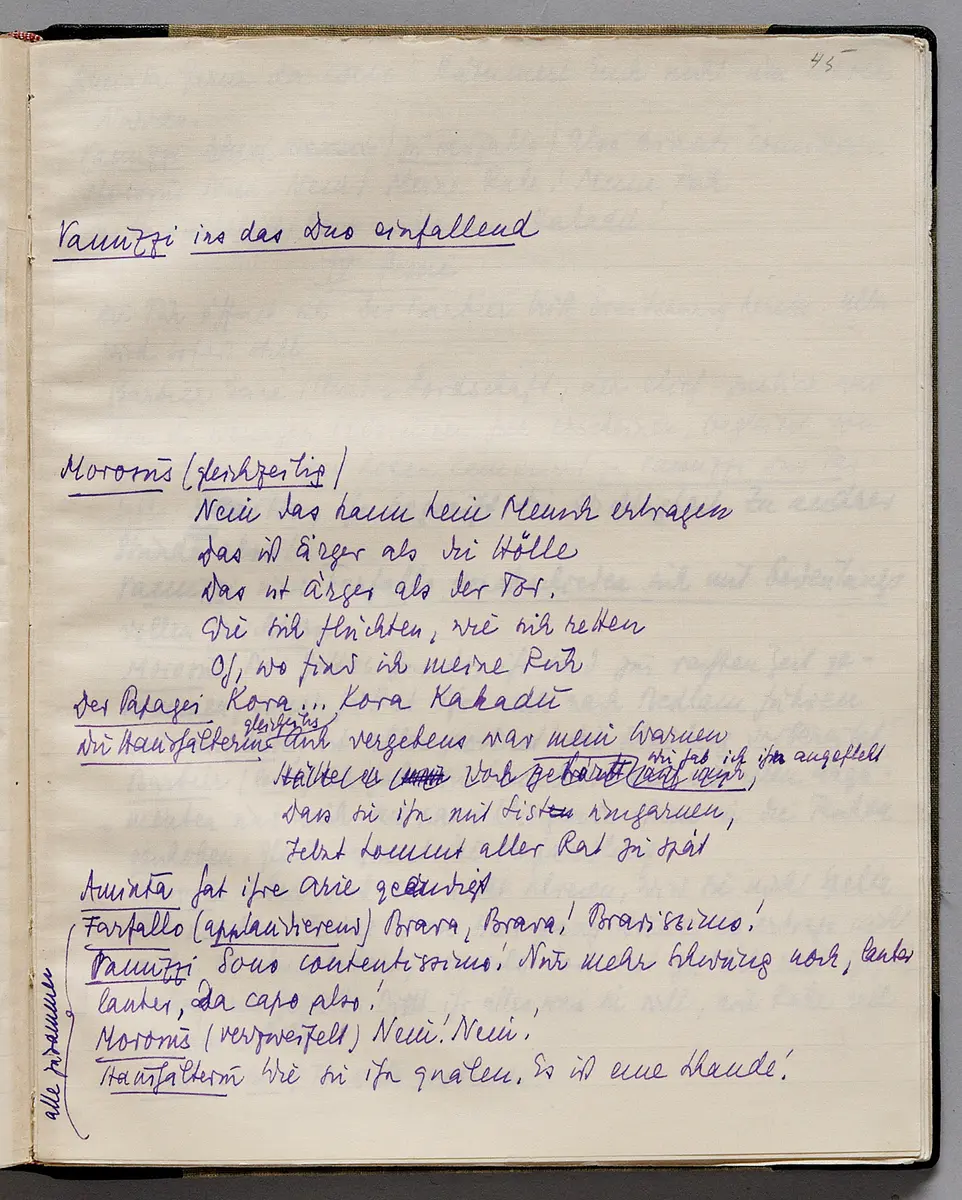 45
Vanuzzi ins das Duo einfallend
Morosus (gleichzeitig)
Nein das kann kein Mensch ertragen
Das ist ärger als die Hölle
Das ist ärger als der Tor.
Wie sich flüchten, wie sich retten
Oh, wo find ich meine Ruh
Der Papagei Kora... Kora Kakadu
Die Haushälterin gleichzeitig Ach vergebens war mein Warnen
Hätte er doch gehört auf mich, wie hab ich ihn angefleht
Dass sie ihn mit Listen umgarnen,
Jetzt kommt aller Rat zu spät
Aminta hat ihre Arie geendigt
Farfallo (applaudierend) Brava, Brava! Bravissimo!
Vanuzzi Sono contentissimo! Nur mehr Schwung noch, lauter
lauter, Da capo also!
Morosus (verzweifelt) Nein! Nein!
Haushälterin Wie sie ihn quälen. Es ist eine Schande!
alle zusammen